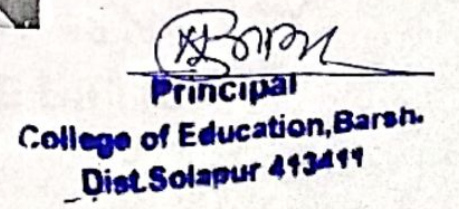 Principal
College of Education, Barsh.
Dist. Solapur 413411